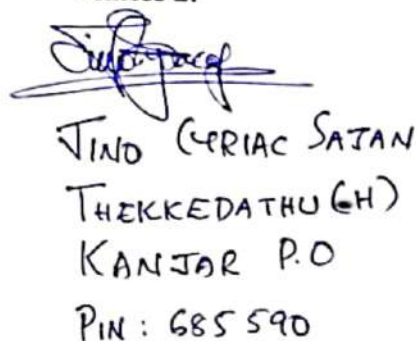 JINO CYRIAC SAJAN
THEKKEDATHU (H)
KANJAR P.O
PIN : 685 590